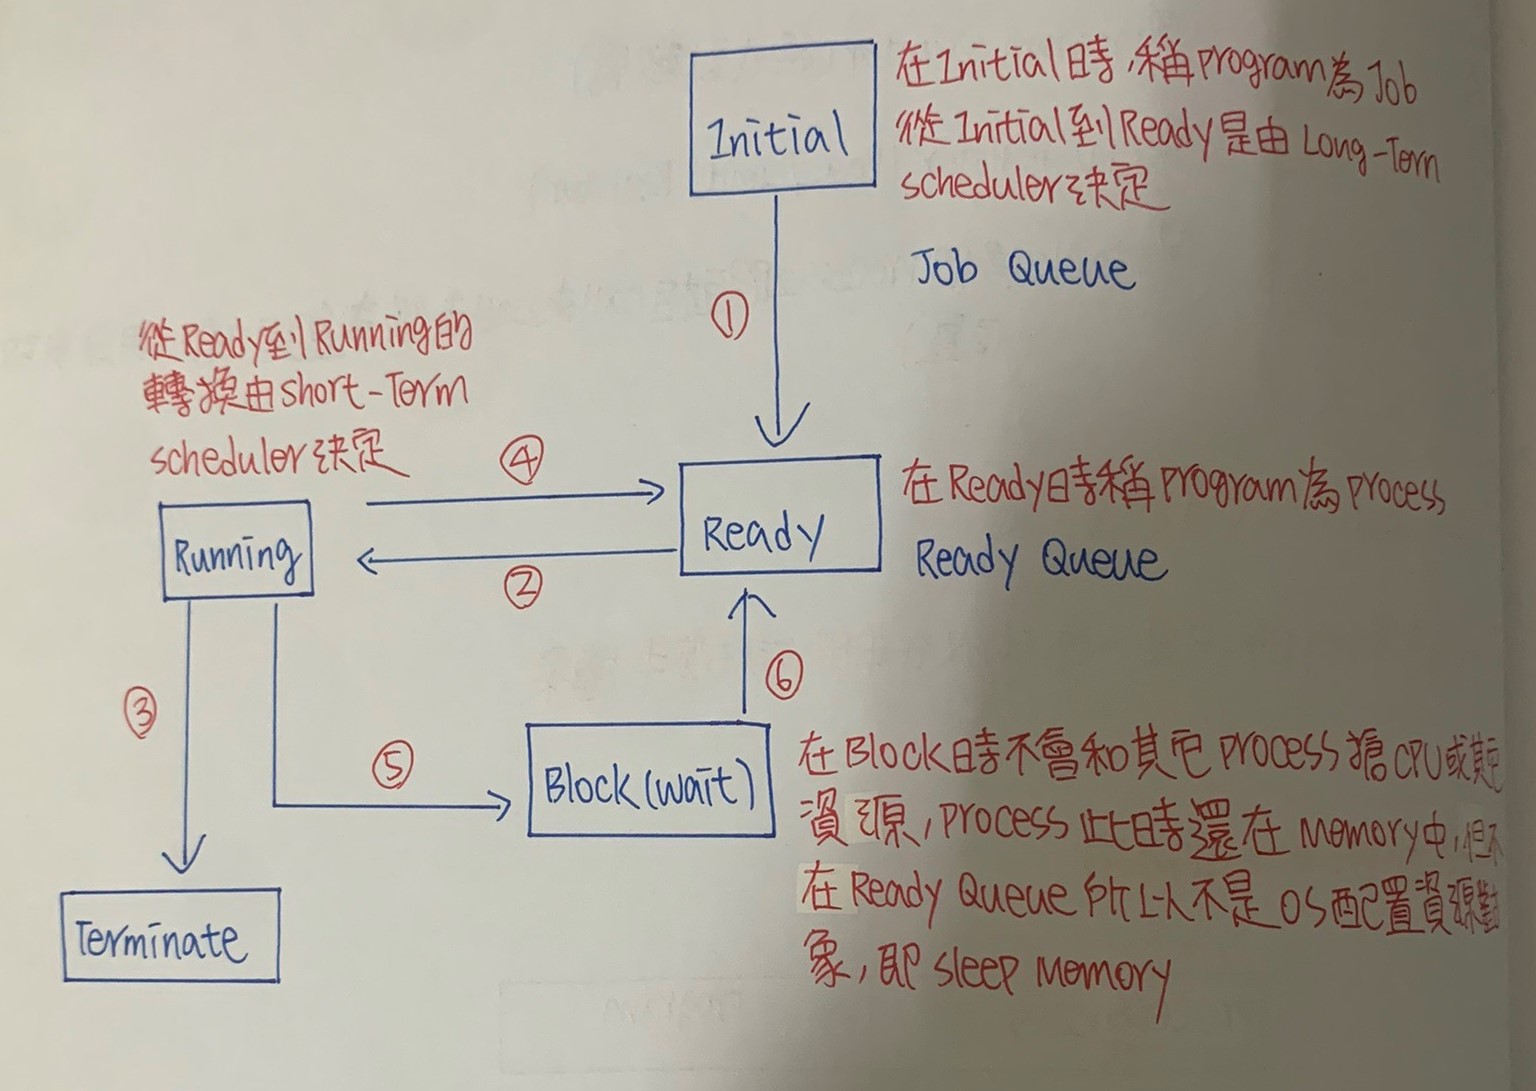 Initial
在Initial時,稱program為Job
從Initial到Ready是由Long-Term
scheduler決定
Job Queue
①
從Ready到Running的
轉換由short-Term
scheduler決定
④
Running
Ready
在Ready時稱program為process
Ready Queue
②
③
⑥
⑤
Block(wait)
在Block時不會和其它process搶CPU或其它
資源,process此時還在Memory中,但不
在Ready Queue所以不是OS配置資源對
象,即sleep Memory
Terminate